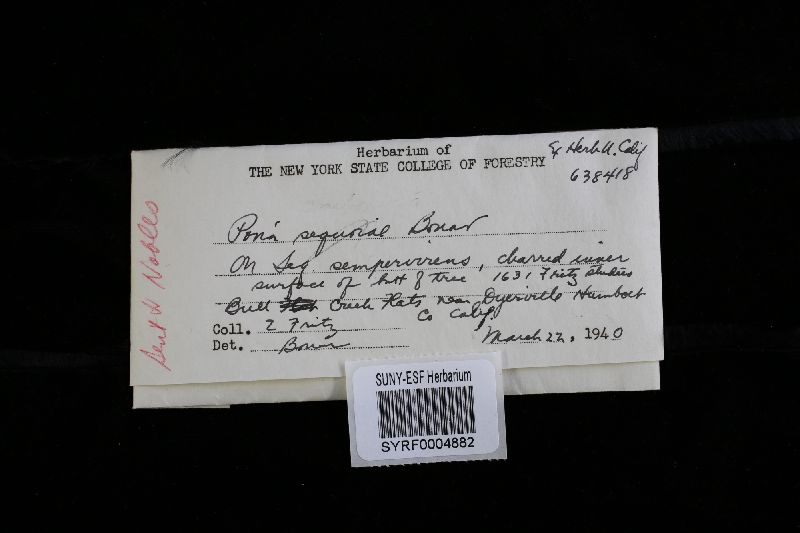 Herbarium of
THE NEW YORK STATE COLLEGE OF FORESTRY
Ex Herb U. Calif
638418
Sent to Nobles
Poria sequoiae Bonar
On Seq. sempervirens, charred inner
surface of butt of tree 1631 Fritz studies
Bull Creek Flats near Dyerville Humbolt
Co Calif
Coll. E Fritz
Det. Bonar
March 22, 1940
SUNY-ESF Herbarium
SYRF0004882